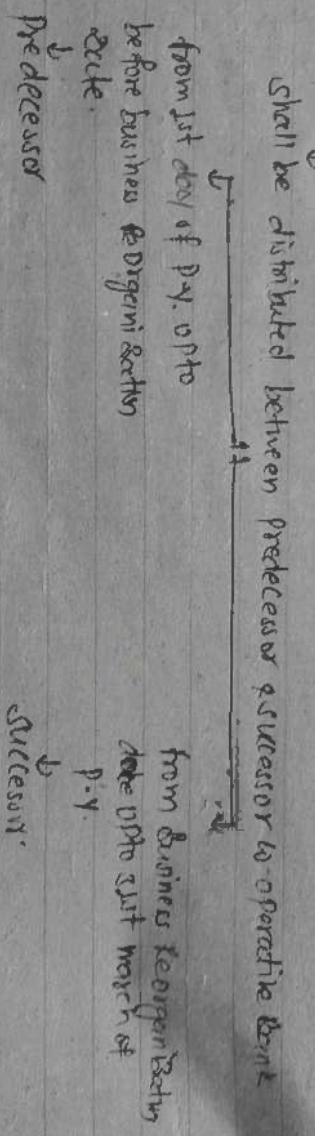 shall be distributed between predecessor & successor co-operative Bank
from 1st day of P.Y. upto
before business Reorganization
date.
Predecessor
from Business Reorganization
date upto 31st march of
P.Y.
Successor.